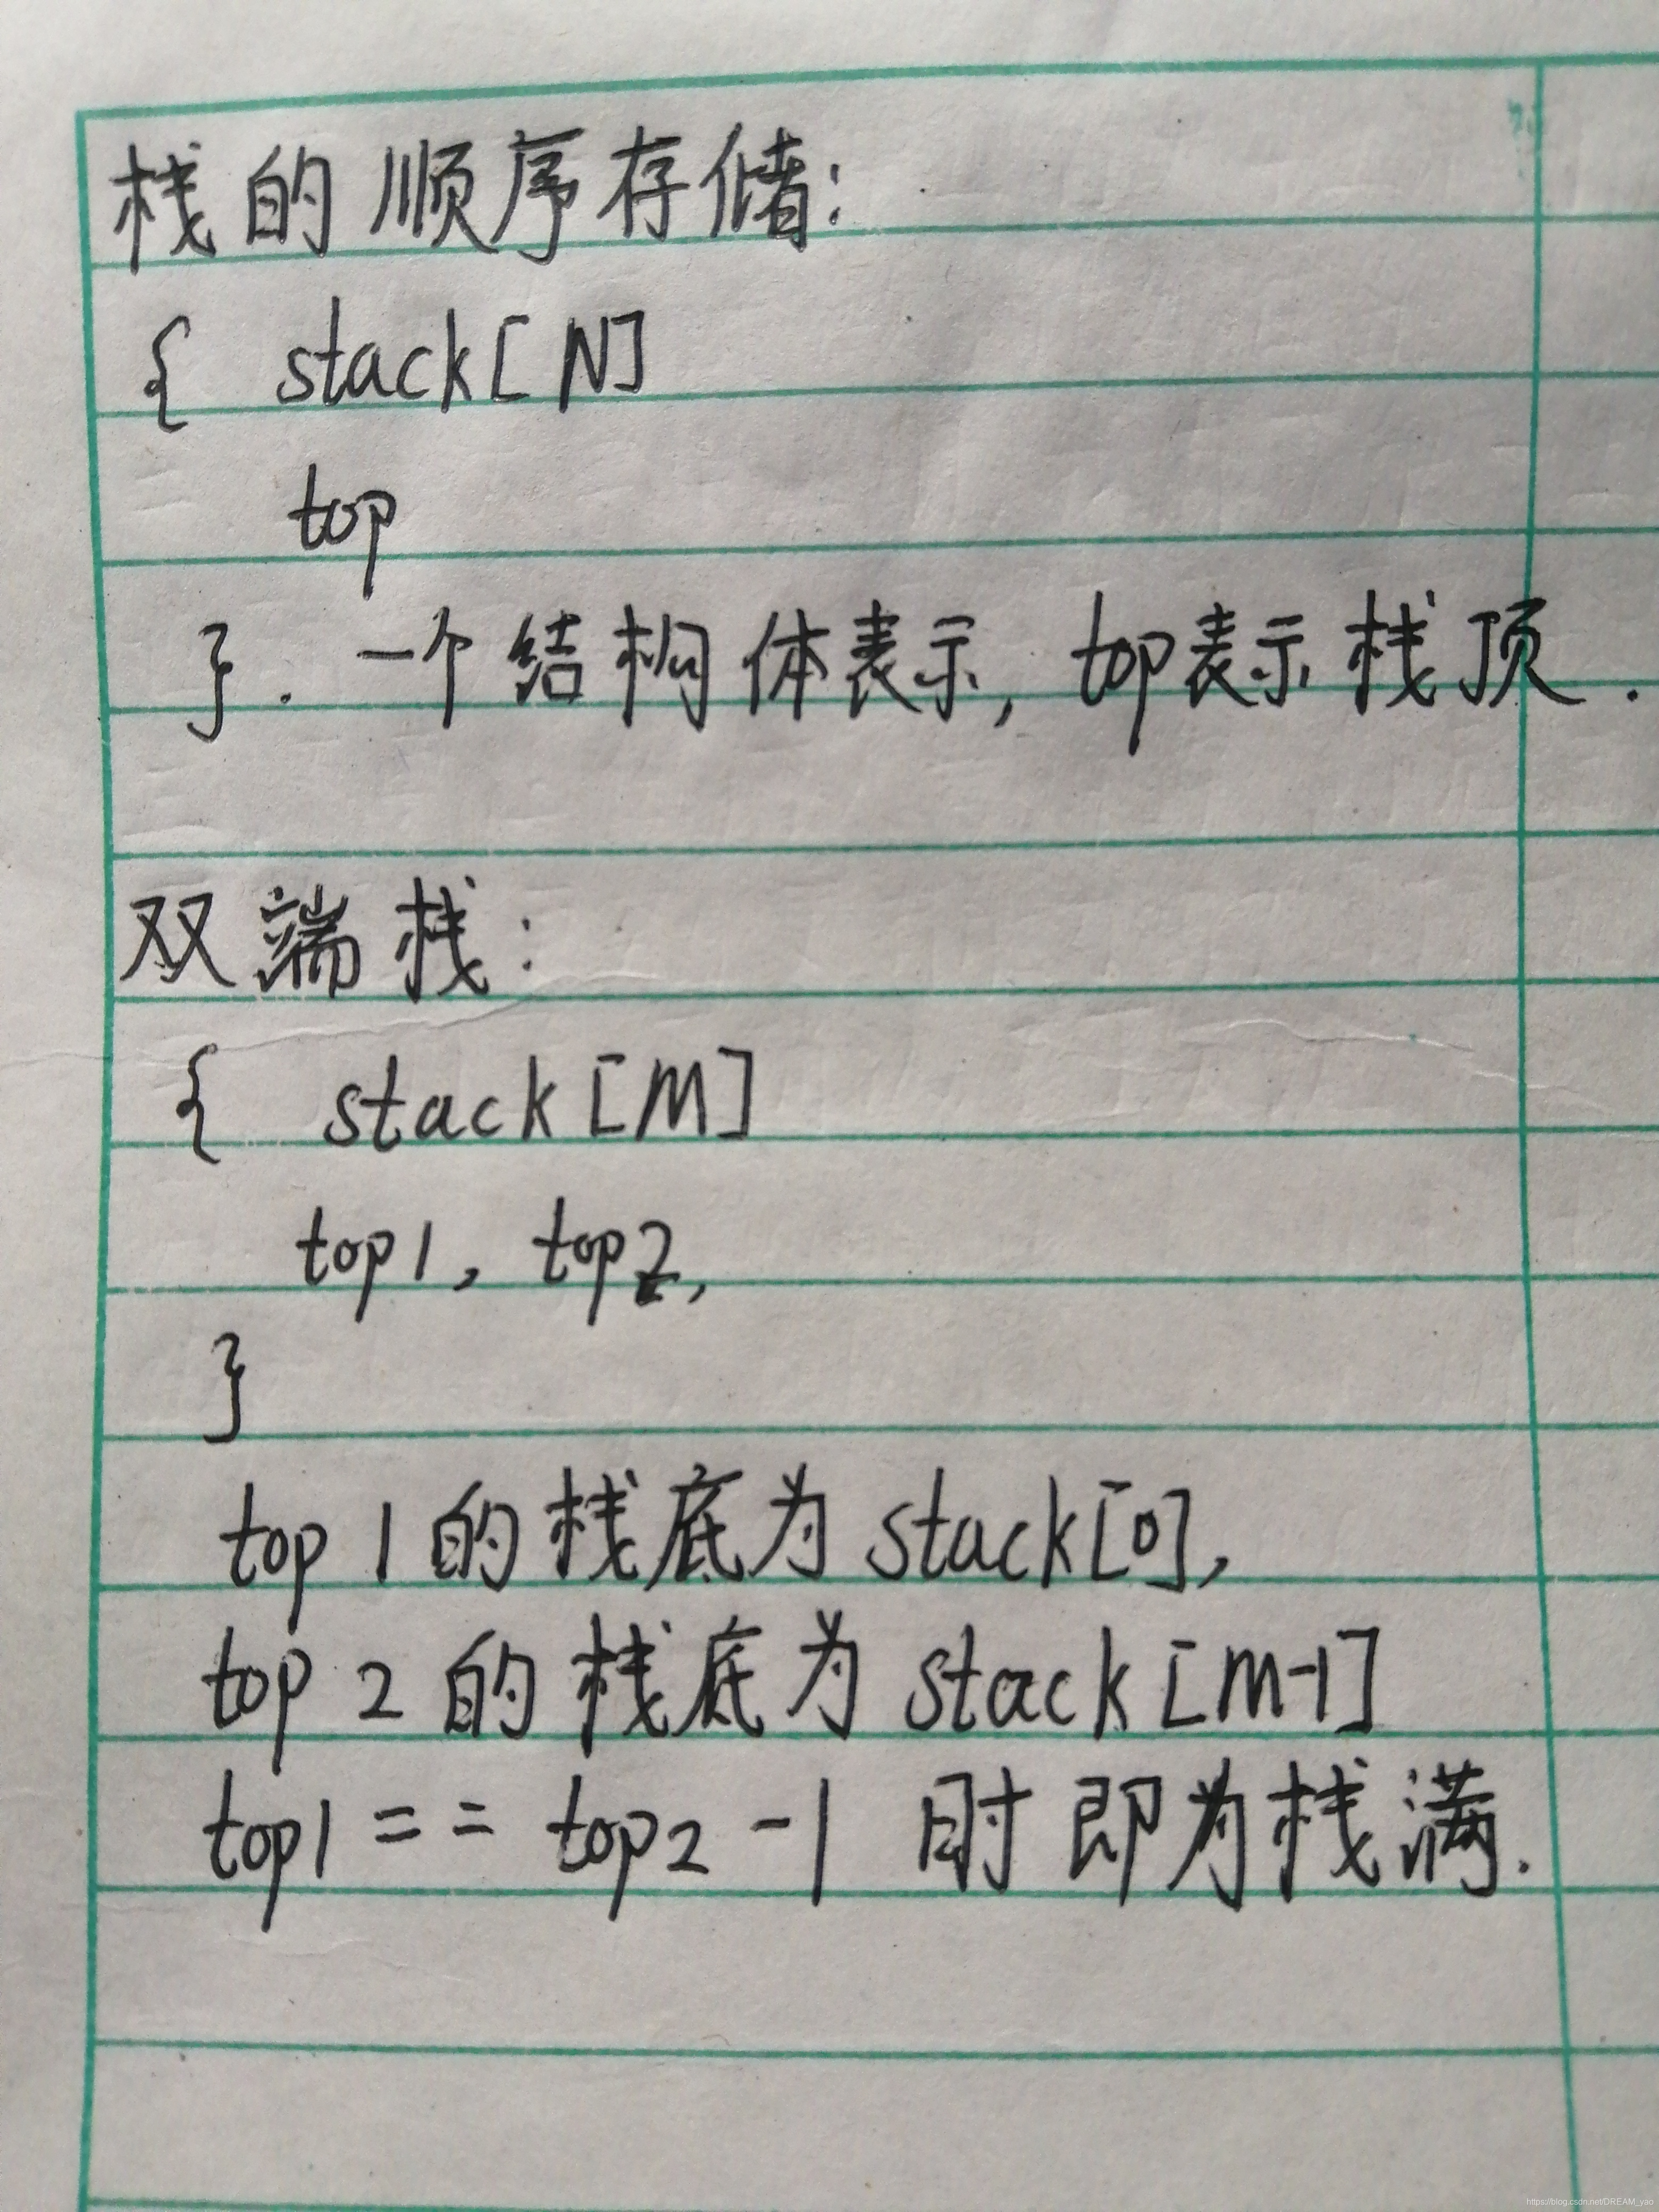 栈的顺序存储:
{ stack[N]
top
}. 一个结构体表示, top表示栈顶.
双端栈:
{ stack[M]
top1, top2,
}
top1的栈底为stack[0],
top2的栈底为stack[M-1]
top1 == top2 -1 时即为栈满.
https://blog.csdn.net/DREAM_yao